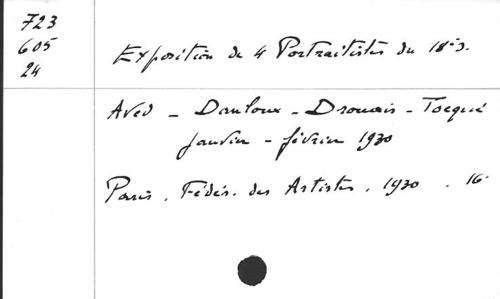 723
605
24
Exposition de 4 Portraitistes du 18e s.
Aved - Danloux - Drouais - Tocqué
janvier - février 1930
Paris. Fédér. des Artistes. 1930. 16